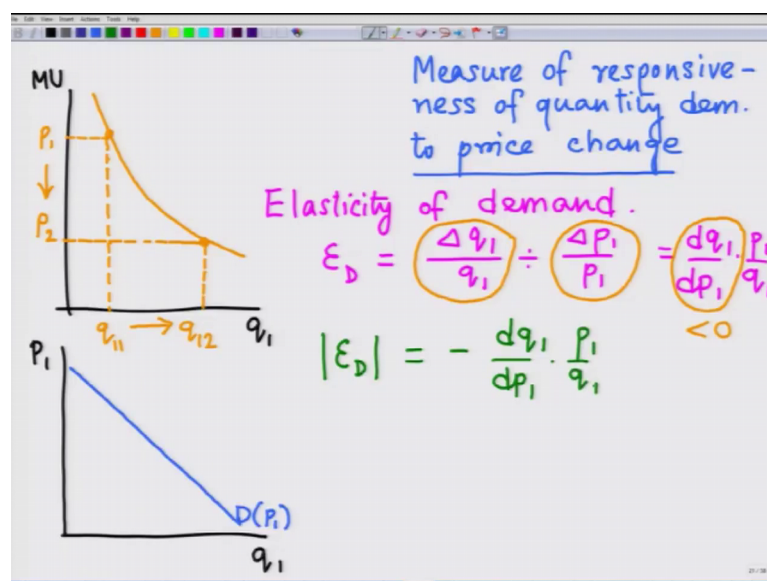 File Edit View Insert Actions Tools Help
Measure of responsive-
ness of quantity dem.
to price change
MU
P₁
↓
P₂
q₁₁ → q₁₂
q₁
Elasticity of demand.
ε_D = Δq₁/q₁ ÷ Δp₁/p₁ = dq₁/dp₁ · p₁/q₁
<0
|ε_D| = - dq₁/dp₁ · p₁/q₁
P₁
D(P₁)
q₁